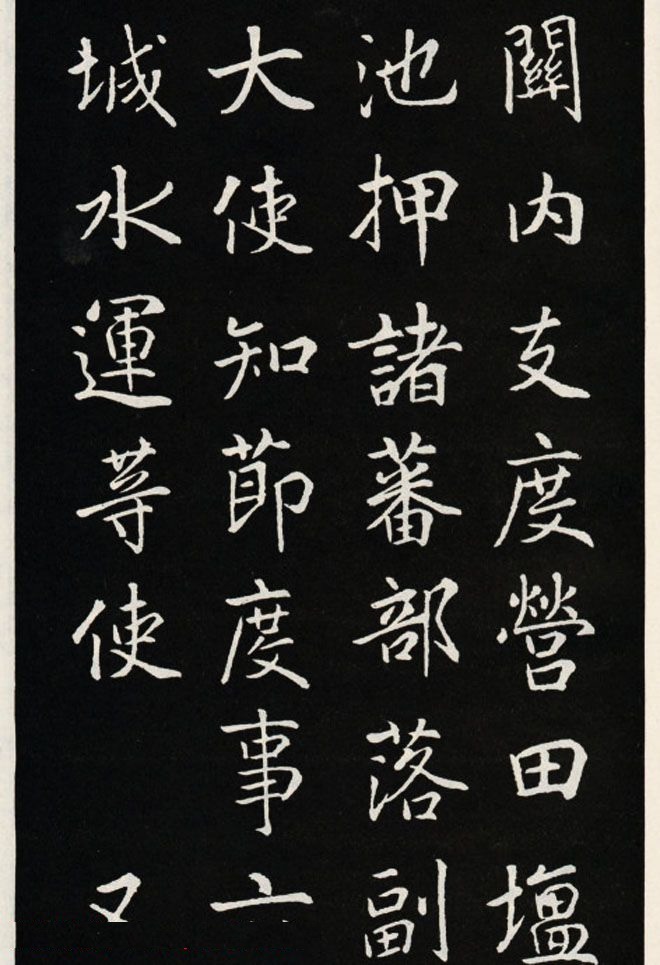 關内支度營田塩
池押諸蕃部落副
大使知節度事
城水運等使